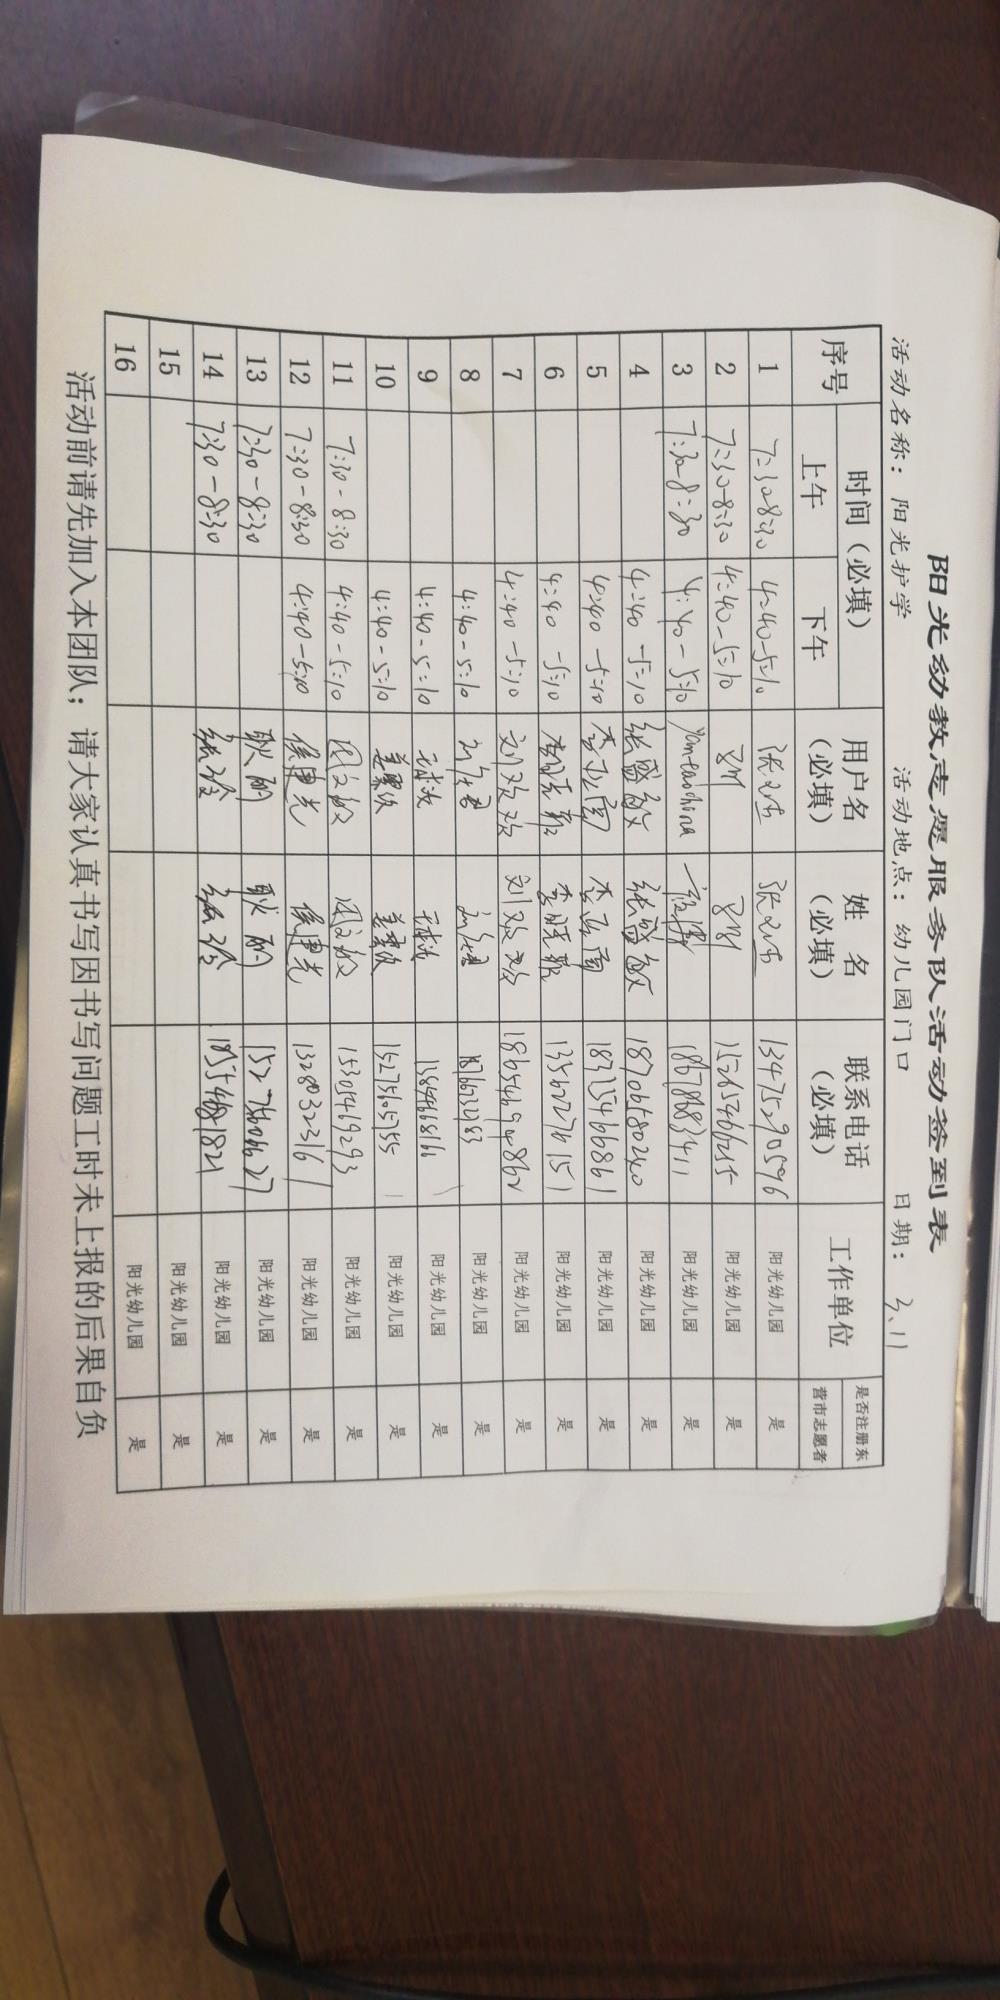 阳光幼教志愿服务队活动签到表
活动名称：阳光护学 活动地点：幼儿园门口 日期：3、11
序号 时间（必填） 用户名（必填） 姓 名（必填） 联系电话（必填） 工作单位 是否注册东营市志愿者
上午 下午
1 7:30-8:30 4:40-5:10 13475290596 阳光幼儿园 是
2 7:30-8:30 4:40-5:10 15615466255 阳光幼儿园 是
3 7:30-8:30 4:40-5:10 18678883411 阳光幼儿园 是
4 4:40-5:10 张盛敏 张盛敏 18706580240 阳光幼儿园 是
5 4:40-5:10 18325466861 阳光幼儿园 是
6 4:40-5:10 阳光幼儿园 是
7 4:40-5:10 刘双双 刘双双 18654694862 阳光幼儿园 是
8 4:40-5:10 阳光幼儿园 是
9 4:40-5:10 阳光幼儿园 是
10 4:40-5:10 15275605755 阳光幼儿园 是
11 7:30-8:30 4:40-5:10 15305469293 阳光幼儿园 是
12 7:30-8:30 4:40-5:10 阳光幼儿园 是
13 7:30-8:30 耿丽 耿丽 15276606627 阳光幼儿园 是
14 7:30-8:30 张玲 张玲 阳光幼儿园 是
15 阳光幼儿园 是
16 阳光幼儿园 是
活动前请先加入本团队；请大家认真书写因书写问题工时未上报的后果自负